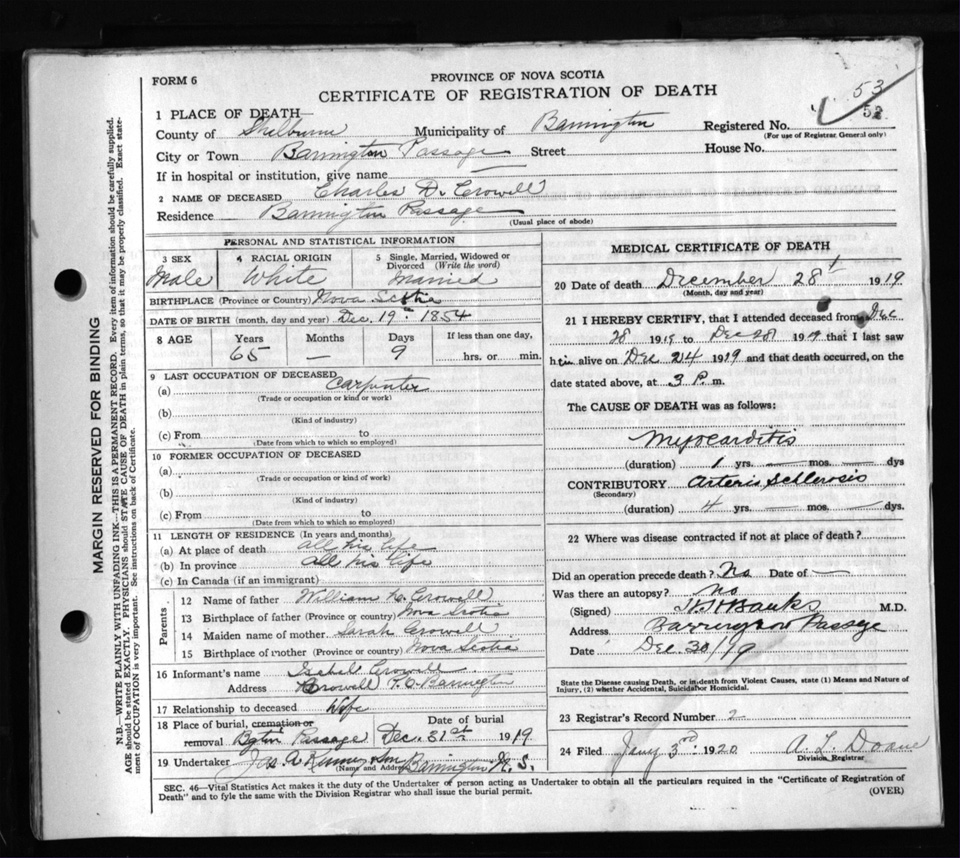 FORM 6
PROVINCE OF NOVA SCOTIA
CERTIFICATE OF REGISTRATION OF DEATH
53
52
1 PLACE OF DEATH—
County of Shelburne Municipality of Barrington Registered No.
(For use of Registrar General only)
City or Town Barrington Passage Street House No.
If in hospital or institution, give name —
2 NAME OF DECEASED Charles D. Crowell
Residence Barrington Passage
(Usual place of abode)
PERSONAL AND STATISTICAL INFORMATION
3 SEX Male
4 RACIAL ORIGIN White
5 Single, Married, Widowed or Divorced (Write the word) Married
BIRTHPLACE (Province or Country) Nova Scotia
DATE OF BIRTH (month, day and year) Dec. 19th 1854
8 AGE Years Months Days If less than one day,
65 — 9 hrs. or min.
9 LAST OCCUPATION OF DECEASED
(a) Carpenter
(Trade or occupation or kind or work)
(b)
(Kind of industry)
(c) From to
(Date from which to which so employed)
10 FORMER OCCUPATION OF DECEASED
(a)
(Trade or occupation or kind of work)
(b)
(Kind of industry)
(c) From to
(Date from which to which so employed)
11 LENGTH OF RESIDENCE (In years and months)
(a) At place of death all his life
(b) In province all his life
(c) In Canada (if an immigrant)
Parents
12 Name of father William Crowell
13 Birthplace of father (Province or country) Nova Scotia
14 Maiden name of mother Sarah Crowell
15 Birthplace of mother (Province or country) Nova Scotia
16 Informant's name Isabel Crowell
Address Crowell P.O. Barrington
17 Relationship to deceased Wife
18 Place of burial, cremation or removal Bgtn Passage
Date of burial Dec. 31st 1919
19 Undertaker Jas A Kenney Son Barrington N.S.
(Name and Address)
MEDICAL CERTIFICATE OF DEATH
20 Date of death December 28t 1919
(Month, day and year)
21 I HEREBY CERTIFY, that I attended deceased from Dec
28 1919 to Dec 28 1919 that I last saw
him alive on Dec 24 1919 and that death occurred, on the
date stated above, at 3 P. m.
The CAUSE OF DEATH was as follows:
Myocarditis
(duration) 1 yrs. — mos. — dys
CONTRIBUTORY Arterio Schlerosis
(Secondary)
(duration) 4 yrs. — mos. — dys.
22 Where was disease contracted if not at place of death?
Did an operation precede death? No Date of —
Was there an autopsy? No
(Signed) Banks M.D.
Address Barrington Passage
Date Dec 30/19
State the Disease causing Death, or in death from Violent Causes, state (1) Means and Nature of
Injury, (2) whether Accidental, Suicidal or Homicidal.
23 Registrar's Record Number 2
24 Filed Jany 3rd 1920 A. L. Doane
Division Registrar
SEC. 46—Vital Statistics Act makes it the duty of the Undertaker or person acting as Undertaker to obtain all the particulars required in the "Certificate of Registration of
Death" and to fyle the same with the Division Registrar who shall issue the burial permit.
(OVER)
MARGIN RESERVED FOR BINDING
N.B.—WRITE PLAINLY WITH UNFADING INK—THIS IS A PERMANENT RECORD. Every item of information should be carefully supplied.
AGE should be stated EXACTLY. PHYSICIANS should STATE CAUSE OF DEATH in plain terms, so that it may be properly classified. Exact state-
ment of OCCUPATION is very important. See instructions on back of Certificate.